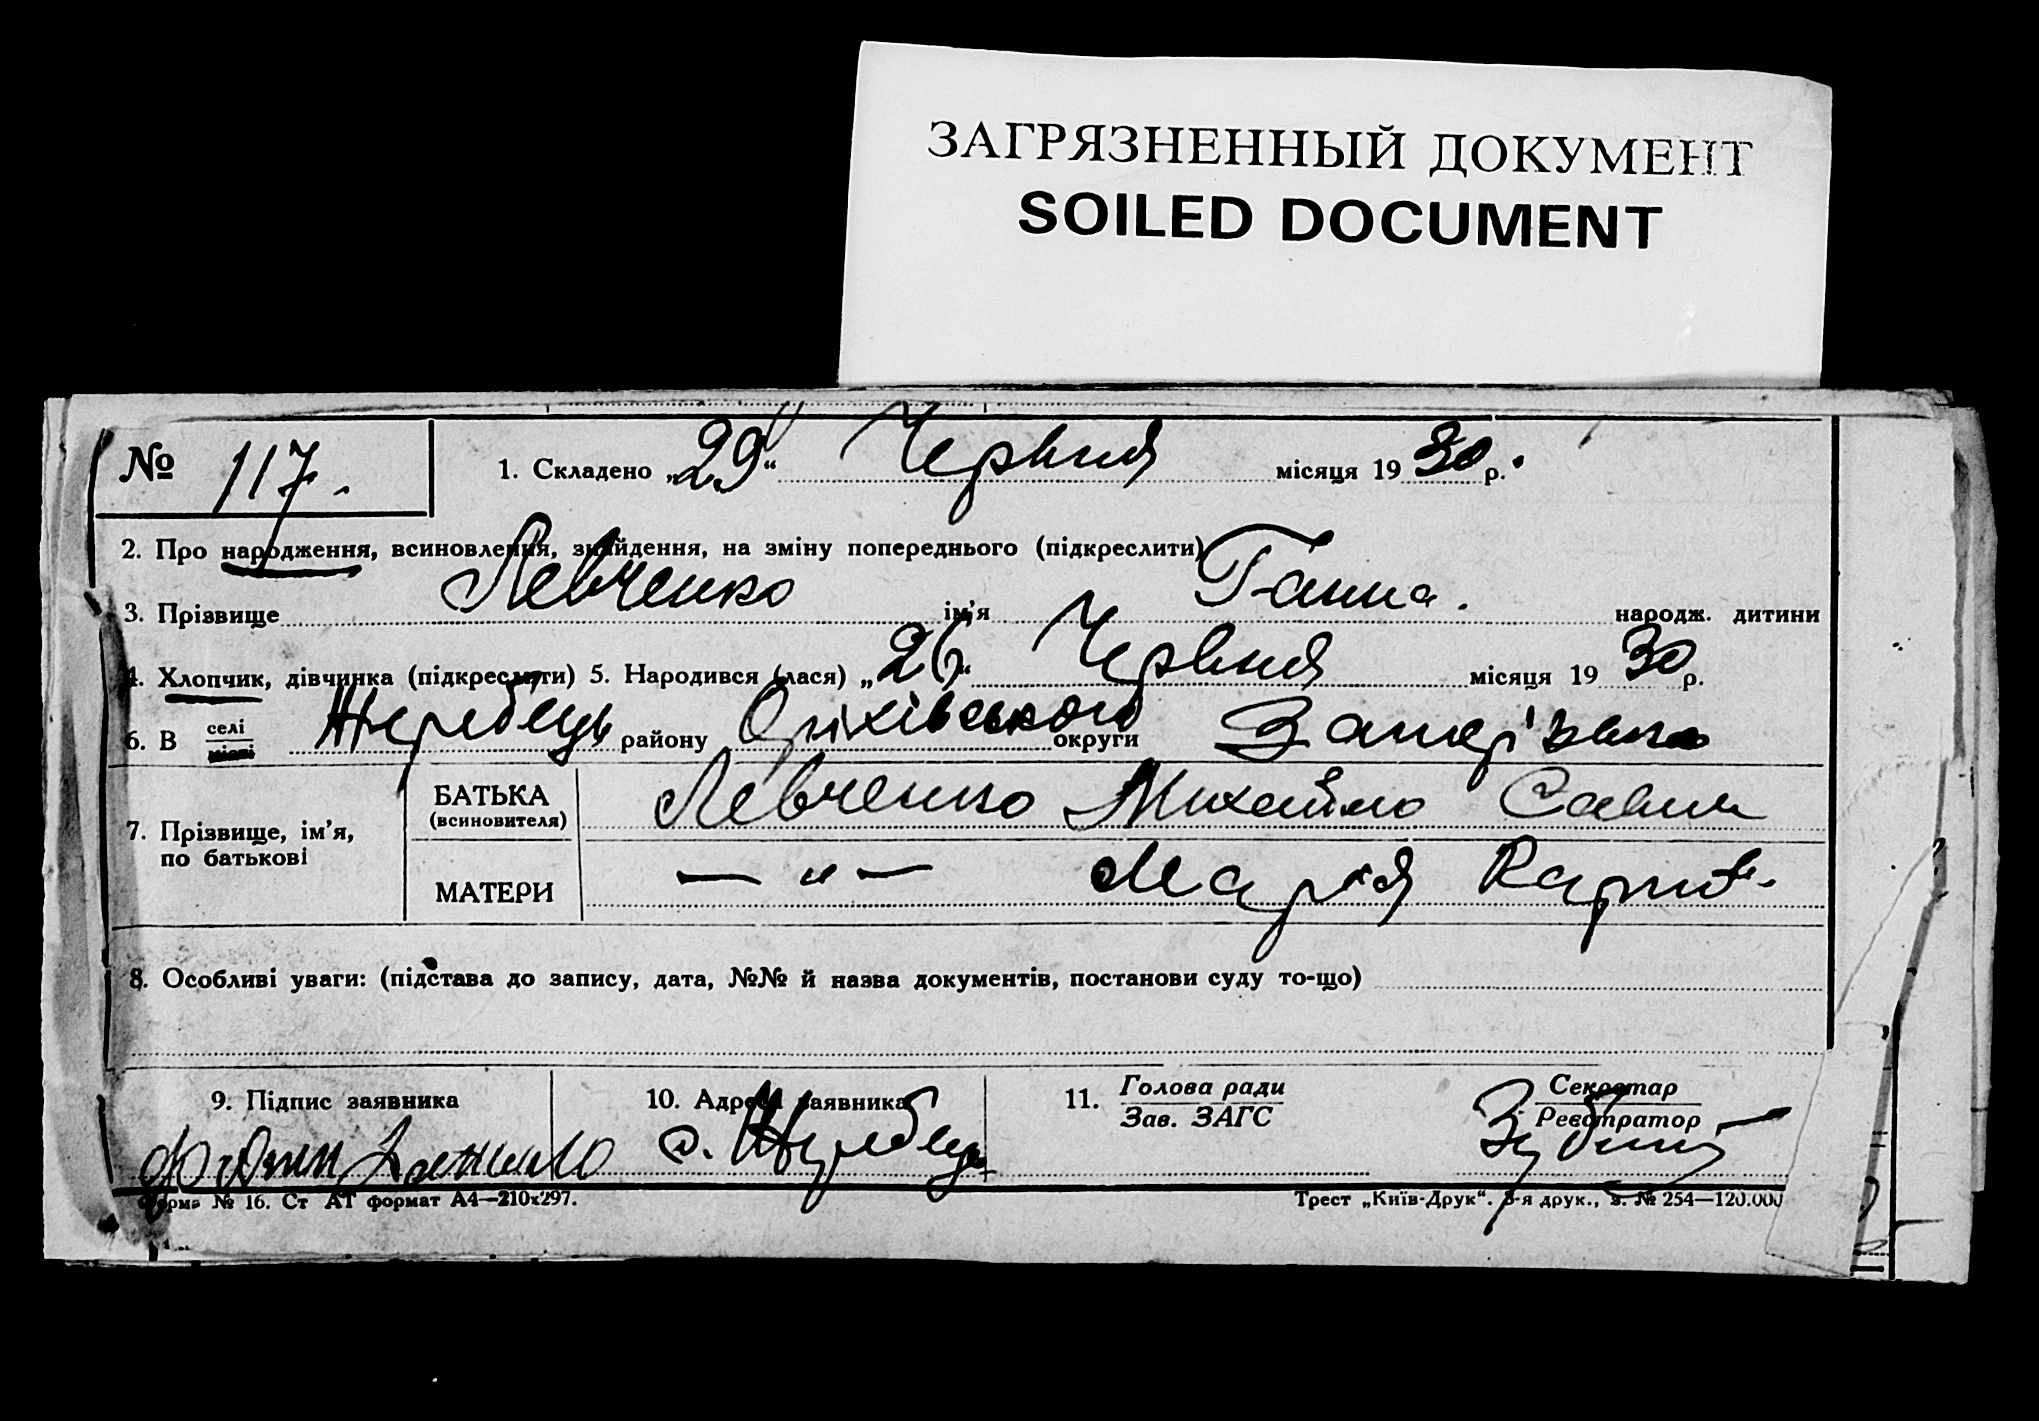 ЗАГРЯЗНЕННЫЙ ДОКУМЕНТ
SOILED DOCUMENT
№ 117. 1. Складено „29“ Червня місяця 1930 р.
2. Про народження, всиновлення, знайдення, на зміну попереднього (підкреслити)
3. Прізвище Левченко ім’я Ганна. народж. дитини
4. Хлопчик, дівчинка (підкреслити) 5. Народився (лася) „26“ Червня місяця 1930 р.
6. В селі місті Жеребець району Оріхівського округи
7. Прізвище, ім’я, по батькові
БАТЬКА (всиновителя) Левченко Михайло Савич
МАТЕРИ — „ — Марія Карпов.
8. Особливі уваги: (підстава до запису, дата, №№ й назва документів, постанови суду то-що)
9. Підпис заявника 10. Адреса заявника 11. Голова ради Секретар
Зав. ЗАГС Реєстратор
с. Жеребець
Форма № 16. Ст АТ формат А4—210х297. Трест „Київ-Друк“. 3-я друк., з. № 254—120.000